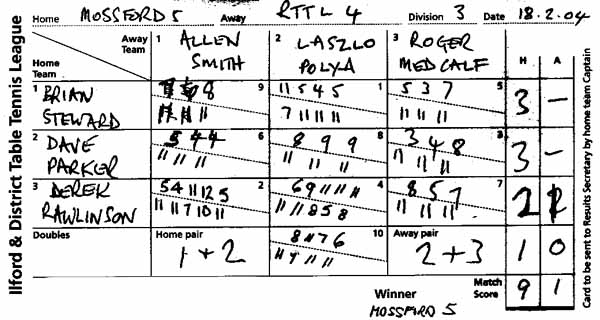 Ilford & District Table Tennis League
Home MOSSFORD 5 Away RTTL 4 Division 3 Date 18.2.04
Away Team 1 ALLEN SMITH 2 LASZLO POLYA 3 ROGER MEDCALF H A
Home Team
1 BRIAN STEWARD 9 1 5 3 –
8 11 5 4 5 5 3 7
11 11 7 11 11 11 11 11 11
2 DAVE PARKER 6 8 3 –
5 4 4 8 9 9 3 4 8
11 11 11 11 11 11 11 11 11
3 DEREK RAWLINSON 2 4 7 2 1
5 4 11 12 5 6 9 11 11 11 8 5 7
11 11 7 10 11 11 11 8 5 8 11 11 11
Doubles Home pair 1+2 10 Away pair 2+3 1 0
8 11 7 6
11 9 11 11
Winner MOSSFORD 5 Match Score 9 1
Card to be sent to Results Secretary by home team Captain